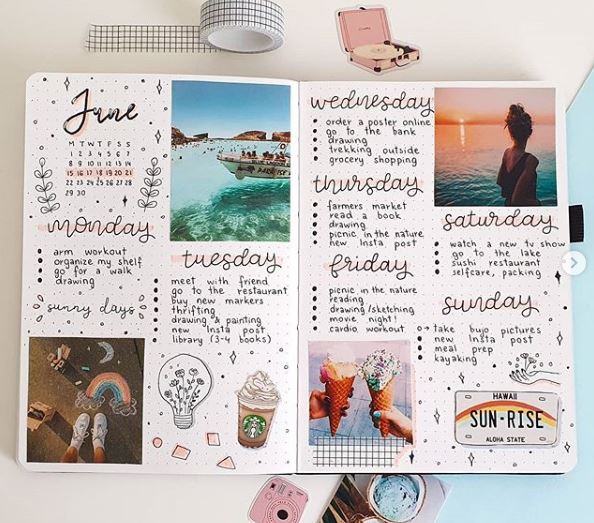 June
M T W T F S S
1 2 3 4 5 6 7
8 9 10 11 12 13 14
15 16 17 18 19 20 21
22 23 24 25 26 27 28
29 30
monday
arm workout
organize my shelf
go for a walk
drawing
sunny days
tuesday
meet with friend
go to the restaurant
buy new markers
thrifting
drawing & painting
new Insta post
library (3-4 books)
wednesday
order a poster online
go to the bank
drawing
trekking outside
grocery shopping
thursday
farmers market
read a book
drawing
picnic in the nature
new Insta post
friday
picnic in the nature
reading
drawing/sketching
movie night!
cardio workout
saturday
watch a new tv show
go to the lake
sushi restaurant
selfcare, packing
sunday
take bujo pictures
new Insta post
meal prep
kayaking
HAWAII
SUN-RISE
ALOHA STATE